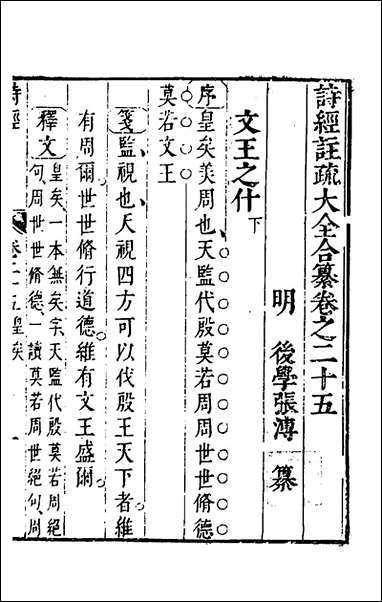 詩經註疏大全合纂卷之二十五
明 後學張溥 纂
文王之什 下
序 皇矣美周也天監代殷莫若周周世世脩德
莫若文王
箋 監視也天視四方可以代殷王天下者維
有周爾世世脩行道德維有文王盛爾
釋文 皇矣一本無矣字天監代殷莫若周絕
句周世世脩德一讀莫若周世絕句周
詩經
卷二十五皇矣
一